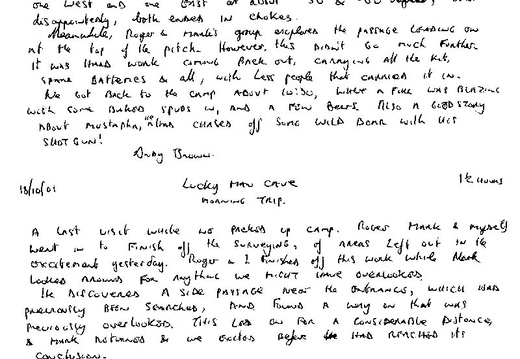 one West and one East at about
disappointedly, both ended in chokes.
Meanwhile, Roger & Mark's group explored the passage leading on
at the top of the pitch. However, this didn't go much further.
It was hard work coming back out, carrying all the kit,
spare batteries & all, with less people that carried it in.
We got back to the camp about 10:30, where a fire was blazing
with some baked spuds in, and a few beers. Also a good story
about Mustapha, chased off some wild boar with his
shot gun!
Andy Brown.
18/10/01 Lucky Man Cave 1½ hours
morning trip.
A last visit while we packed up camp. Roger Mark & myself
went in to finish off the surveying, of areas left out in the
excitement yesterday. Roger & I finished off this work while Mark
looked around for anything we might have overlooked.
He discovered a side passage near the entrance, which had
previously been searched, and found a way on that was
previously overlooked. This led on for a considerable distance,
& Mark returned & we exited before he had reached its
conclusion.